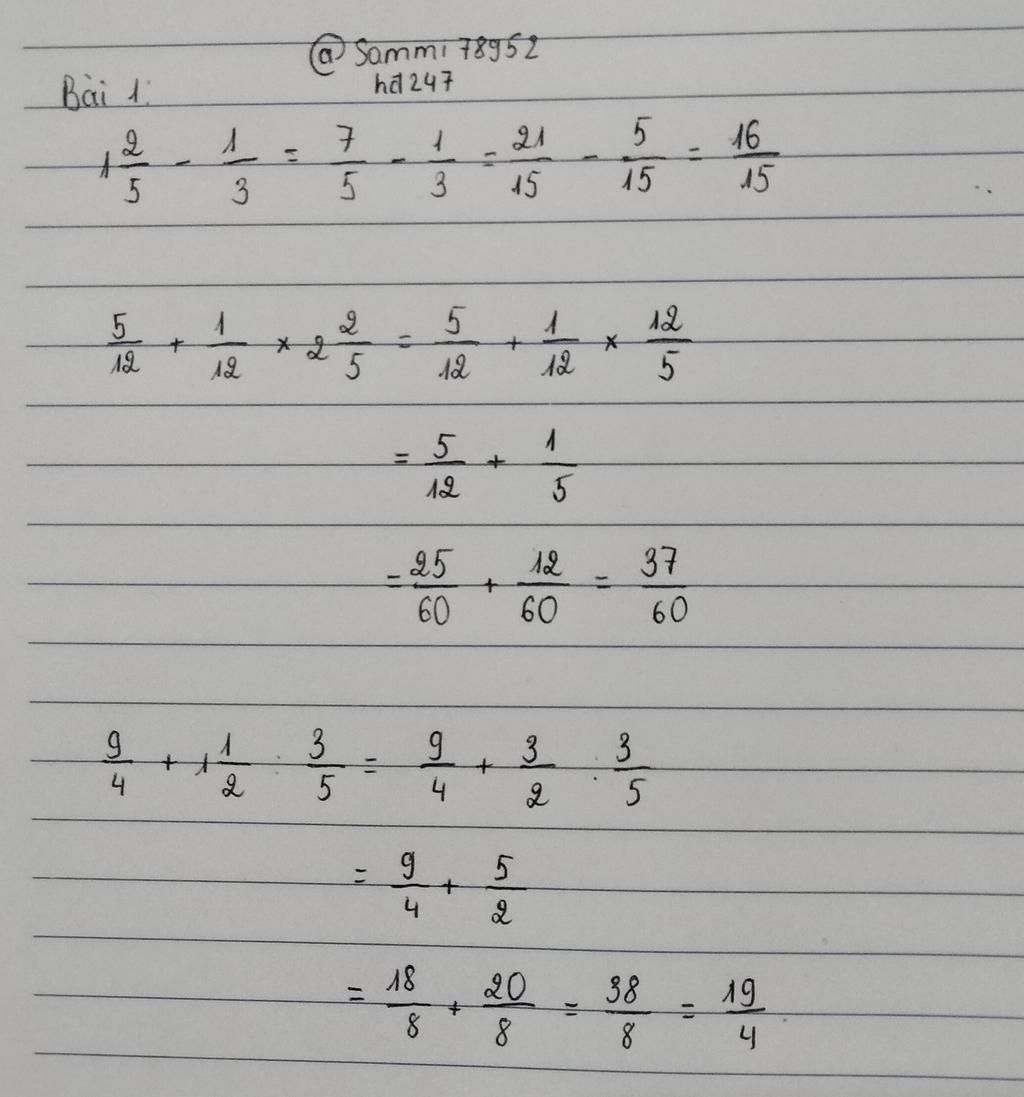 @Sammi78952
hd247
Bài 1:
1 2/5 - 1/3 = 7/5 - 1/3 = 21/15 - 5/15 = 16/15
5/12 + 1/12 × 2 2/5 = 5/12 + 1/12 × 12/5
= 5/12 + 1/5
= 25/60 + 12/60 = 37/60
9/4 + 1 1/2 : 3/5 = 9/4 + 3/2 : 3/5
= 9/4 + 5/2
= 18/8 + 20/8 = 38/8 = 19/4